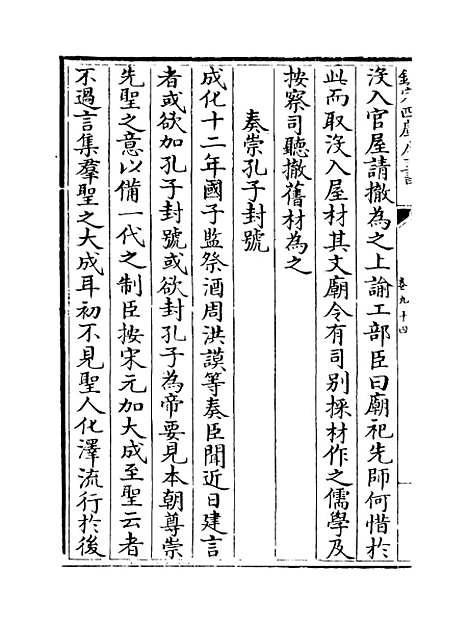 欽定四庫全書
卷九十四
沒入官屋請撤為之上諭工部臣曰廟祀先師何惜於
此而取沒入屋材其文廟令有司別採材作之儒學及
按察司聽撤舊材為之
奏崇孔子封號
成化十二年國子監祭酒周洪謨等奏臣聞近日建言
者或欲加孔子封號或欲封孔子為帝要見本朝尊崇
先聖之意以備一代之制臣按宋元加大成至聖云者
不過言集羣聖之大成耳初不見聖人化澤流行於後